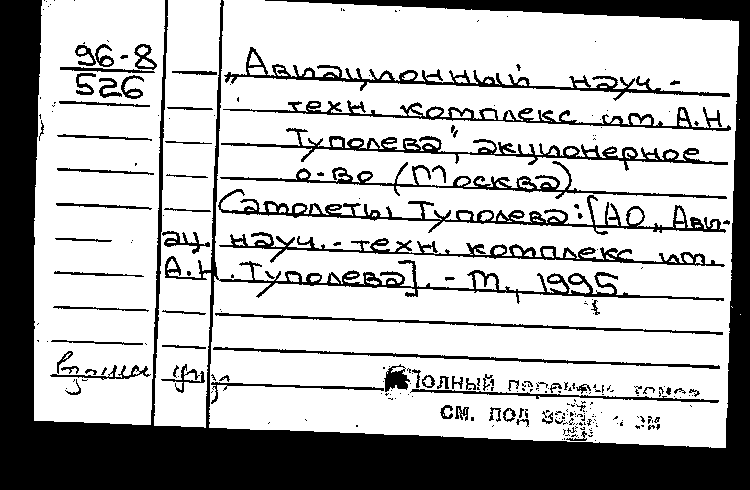 96-8
526
„Авиационный науч.-
техн. комплекс им. А.Н.
Туполева", акционерное
о-во (Москва).
Самолеты Туполева: [АО „Ави-
ац. науч.-техн. комплекс им.
А.Н. Туполева]. - М., 1995.
Полный перечень томов
см. под